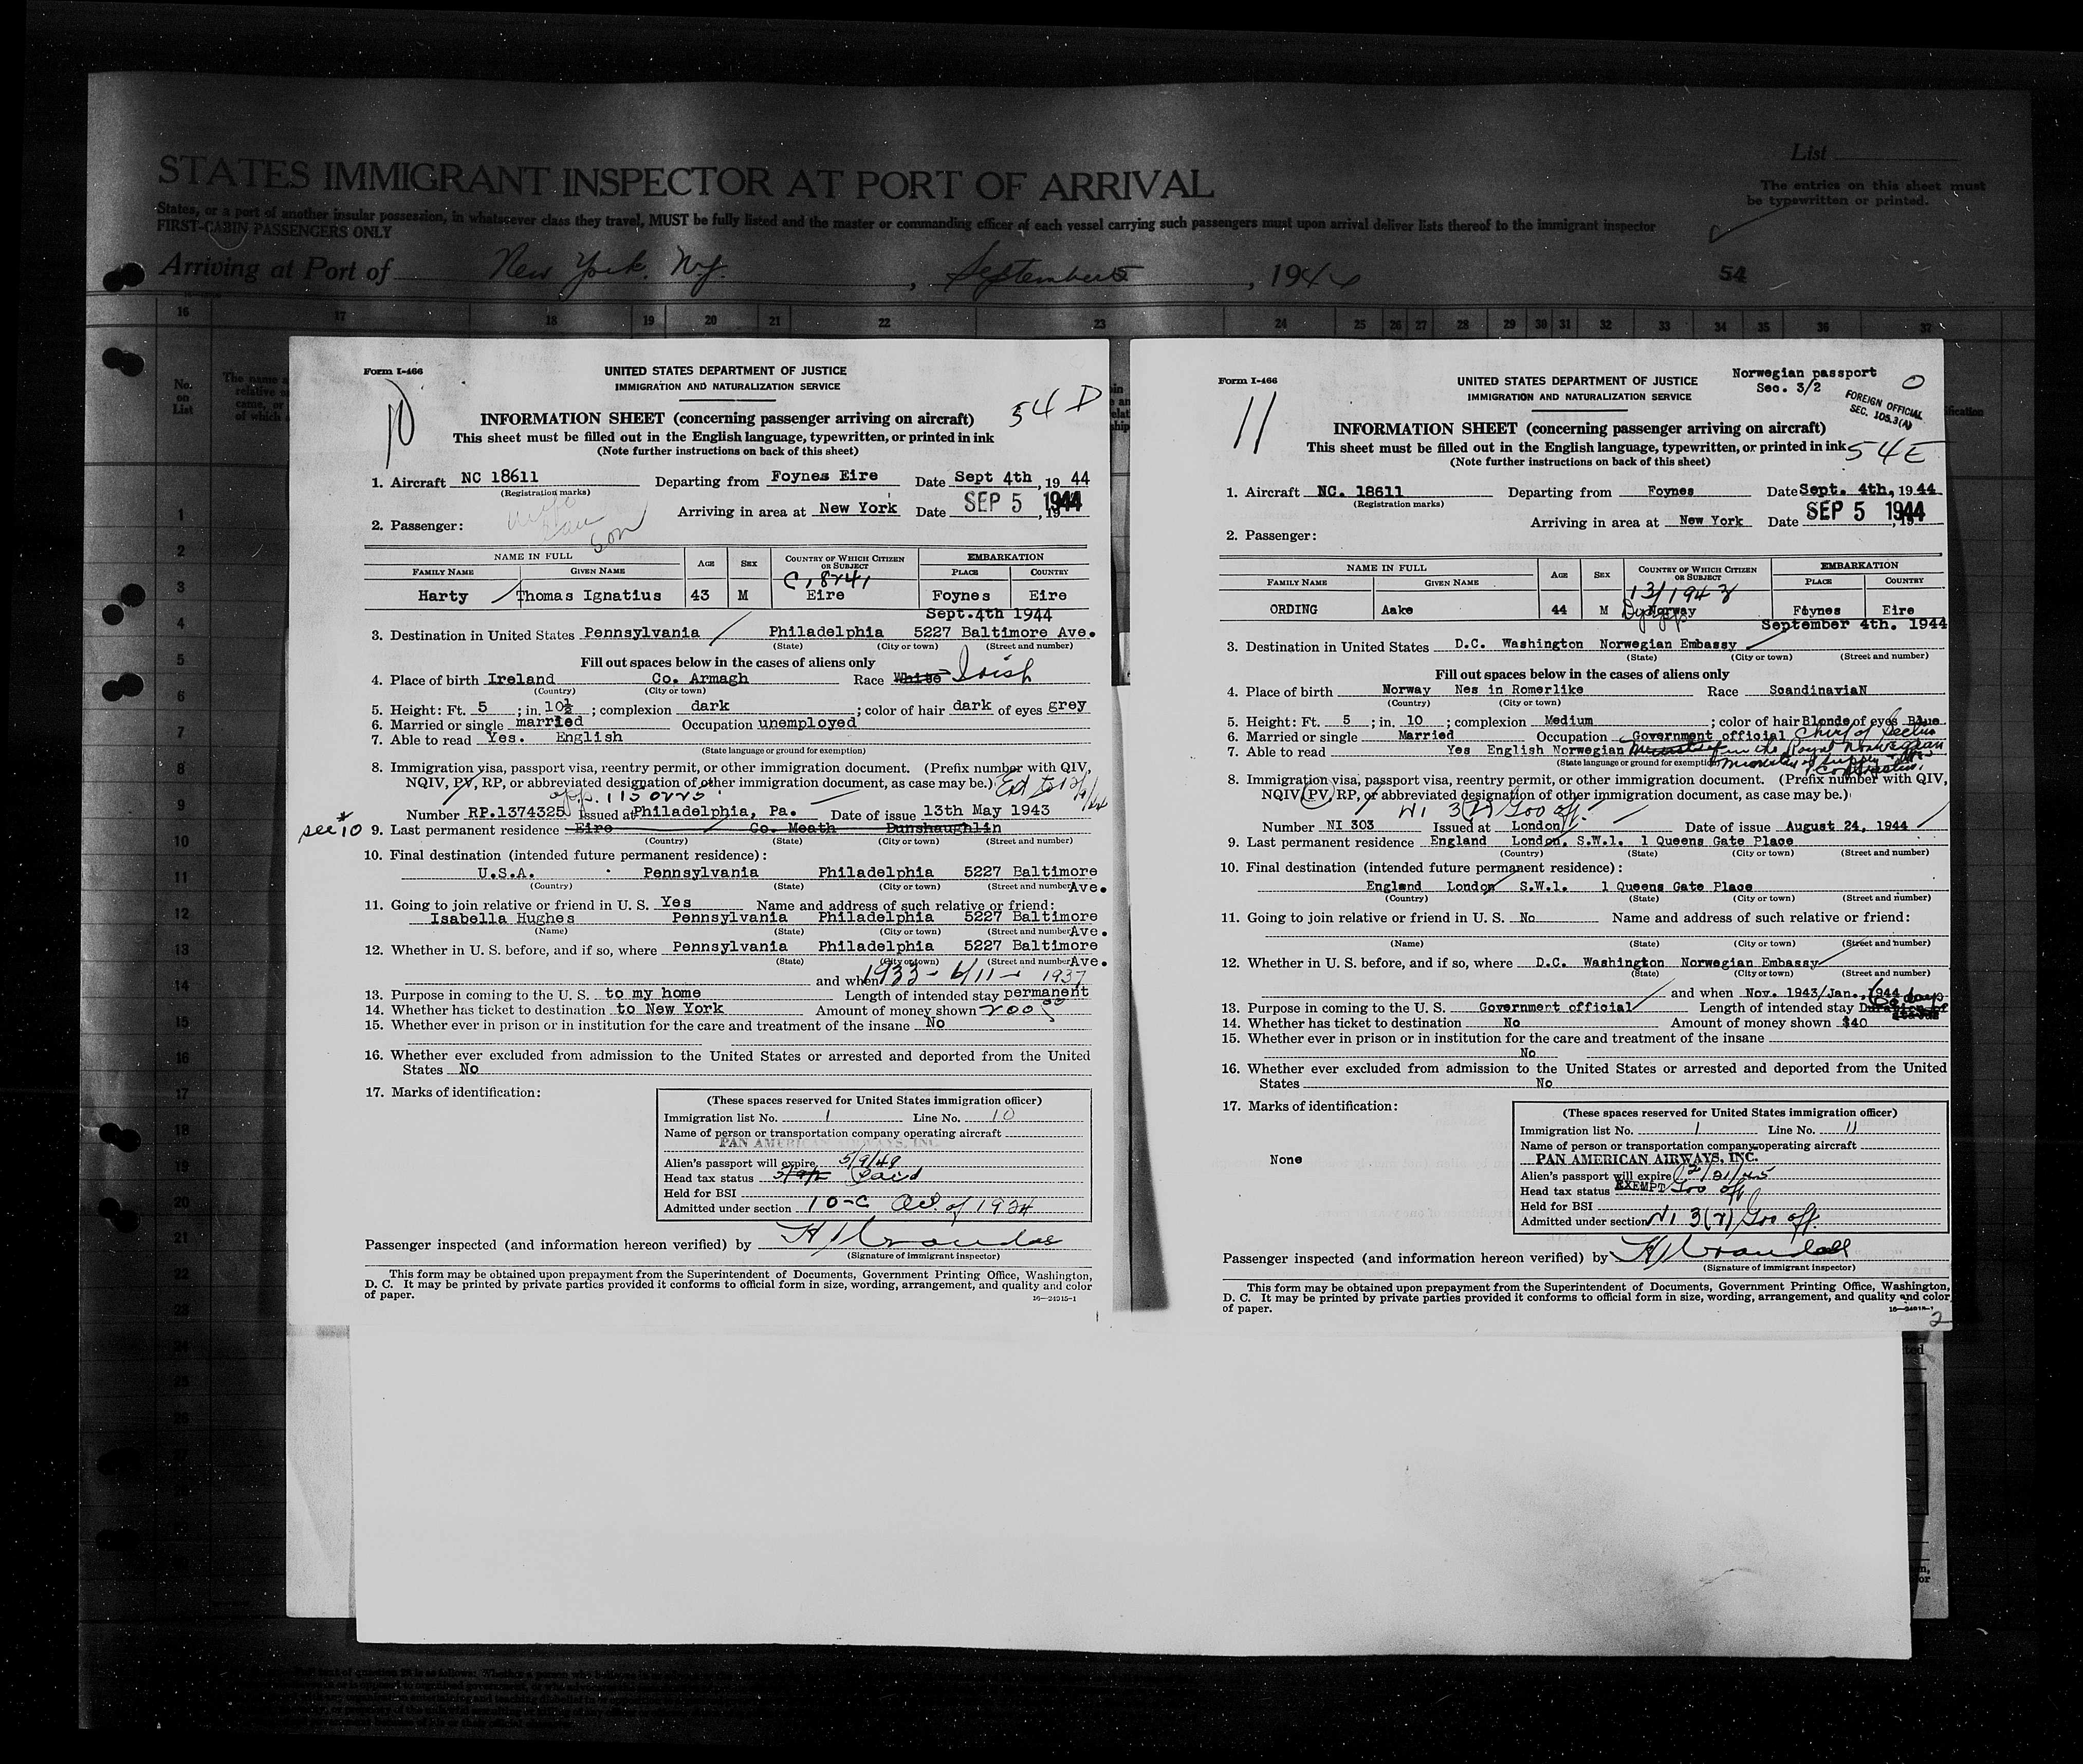 List
STATES IMMIGRANT INSPECTOR AT PORT OF ARRIVAL
The entries on this sheet must
be typewritten or printed.
States, or a port of another insular possession, in whatsoever class they travel, MUST be fully listed and the master or commanding officer of each vessel carrying such passengers must upon arrival deliver lists thereof to the immigrant inspector
FIRST-CABIN PASSENGERS ONLY
Arriving at Port of New York, N.Y., September 5, 1944
54
16 17 18 19 20 21 22 23 24 25 26 27 28 29 30 31 32 33 34 35 36 37
No. on List
1
2
3
4
5
6
7
8
9
10
11
12
13
14
15
16
17
18
19
20
21
22
23
24
25
26
Form I-466
10
UNITED STATES DEPARTMENT OF JUSTICE
IMMIGRATION AND NATURALIZATION SERVICE
54 D
INFORMATION SHEET (concerning passenger arriving on aircraft)
This sheet must be filled out in the English language, typewritten, or printed in ink
(Note further instructions on back of this sheet)
1. Aircraft NC 18611 Departing from Foynes Eire Date Sept 4th, 19 44
(Registration marks)
Arriving in area at New York Date SEP 5 1944
2. Passenger:
son
NAME IN FULL AGE SEX COUNTRY OF WHICH CITIZEN OR SUBJECT EMBARKATION
FAMILY NAME GIVEN NAME PLACE COUNTRY
Harty Thomas Ignatius 43 M Eire Foynes Eire
Sept.4th 1944
3. Destination in United States Pennsylvania Philadelphia 5227 Baltimore Ave.
(State) (City or town) (Street and number)
Fill out spaces below in the cases of aliens only
4. Place of birth Ireland Co. Armagh Race White Irish
(Country) (City or town)
5. Height: Ft. 5 ; in. 10½ ; complexion dark ; color of hair dark of eyes grey
6. Married or single married Occupation unemployed
7. Able to read Yes. English
(State language or ground for exemption)
8. Immigration visa, passport visa, reentry permit, or other immigration document. (Prefix number with QIV,
NQIV, PV, RP, or abbreviated designation of other immigration document, as case may be.)
Number RP.1374325 Issued at Philadelphia, Pa. Date of issue 13th May 1943
see #10 9. Last permanent residence Eire Co. Meath Dunshaughlin
(Country) (State) (City or town) (Street and number)
10. Final destination (intended future permanent residence):
U.S.A. Pennsylvania Philadelphia 5227 Baltimore
(Country) (State) (City or town) (Street and number) Ave.
11. Going to join relative or friend in U. S. Yes Name and address of such relative or friend:
Isabella Hughes Pennsylvania Philadelphia 5227 Baltimore
(Name) (State) (City or town) (Street and number) Ave.
12. Whether in U. S. before, and if so, where Pennsylvania Philadelphia 5227 Baltimore
(State) (City or town) (Street and number) Ave.
and when 1933 - 6/11 - 1937
13. Purpose in coming to the U. S. to my home Length of intended stay permanent
14. Whether has ticket to destination to New York Amount of money shown 200 00
15. Whether ever in prison or in institution for the care and treatment of the insane No
16. Whether ever excluded from admission to the United States or arrested and deported from the United
States No
17. Marks of identification:
(These spaces reserved for United States immigration officer)
Immigration list No. 1 Line No. 10
Name of person or transportation company operating aircraft
PAN AMERICAN AIRWAYS, INC.
Alien's passport will expire 5/9/49
Head tax status Paid
Held for BSI
Admitted under section 10-C Act of 1924
Passenger inspected (and information hereon verified) by H Crandall
(Signature of immigrant inspector)
This form may be obtained upon prepayment from the Superintendent of Documents, Government Printing Office, Washington,
D. C. It may be printed by private parties provided it conforms to official form in size, wording, arrangement, and quality and color
of paper.
16—24915-1
Form I-466
11
UNITED STATES DEPARTMENT OF JUSTICE
IMMIGRATION AND NATURALIZATION SERVICE
Norwegian passport
Sec. 3/2
FOREIGN OFFICIAL
SEC. 105.3(A)
INFORMATION SHEET (concerning passenger arriving on aircraft)
This sheet must be filled out in the English language, typewritten, or printed in ink 54 E
(Note further instructions on back of this sheet)
1. Aircraft NC. 18611 Departing from Foynes Date Sept. 4th, 19 44.
(Registration marks)
Arriving in area at New York Date SEP 5 1944
2. Passenger:
NAME IN FULL AGE SEX COUNTRY OF WHICH CITIZEN OR SUBJECT EMBARKATION
FAMILY NAME GIVEN NAME PLACE COUNTRY
ORDING Aake 44 M Norway Foynes Eire
September 4th. 1944
3. Destination in United States D.C. Washington Norwegian Embassy
(State) (City or town) (Street and number)
Fill out spaces below in the cases of aliens only
4. Place of birth Norway Nes in Romerlike Race ScandinaviaN
(Country) (City or town)
5. Height: Ft. 5 ; in. 10 ; complexion Medium ; color of hair Blonde of eyes Blue
6. Married or single Married Occupation Government official Chief of Section
7. Able to read Yes English Norwegian in the Royal Norwegian
(State language or ground for exemption) Ministry of Supply
8. Immigration visa, passport visa, reentry permit, or other immigration document. (Prefix number with QIV,
NQIV, PV, RP, or abbreviated designation of other immigration document, as case may be.)
NI 3(2) Gov off.
Number NI 303 Issued at London Date of issue August 24, 1944
9. Last permanent residence England London. S.W.1. 1 Queens Gate Place
(Country) (State) (City or town) (Street and number)
10. Final destination (intended future permanent residence):
England London S.W.1. 1 Queens Gate Place
(Country) (State) (City or town) (Street and number)
11. Going to join relative or friend in U. S. No Name and address of such relative or friend:
(Name) (State) (City or town) (Street and number)
12. Whether in U. S. before, and if so, where D.C. Washington Norwegian Embassy
(State) (City or town) (Street and number)
and when Nov. 1943/Jan., 1944
13. Purpose in coming to the U. S. Government official Length of intended stay 60 days
14. Whether has ticket to destination No Amount of money shown $40
15. Whether ever in prison or in institution for the care and treatment of the insane
No
16. Whether ever excluded from admission to the United States or arrested and deported from the United
States No
17. Marks of identification:
None
(These spaces reserved for United States immigration officer)
Immigration list No. 1 Line No. 11
Name of person or transportation company operating aircraft
PAN AMERICAN AIRWAYS, INC.
Alien's passport will expire 12/21/45
Head tax status EXEMPT Gov off
Held for BSI
Admitted under section NI 3(2) Gov off.
Passenger inspected (and information hereon verified) by H Crandall
(Signature of immigrant inspector)
This form may be obtained upon prepayment from the Superintendent of Documents, Government Printing Office, Washington,
D. C. It may be printed by private parties provided it conforms to official form in size, wording, arrangement, and quality and color
of paper.
16—24915-1
2